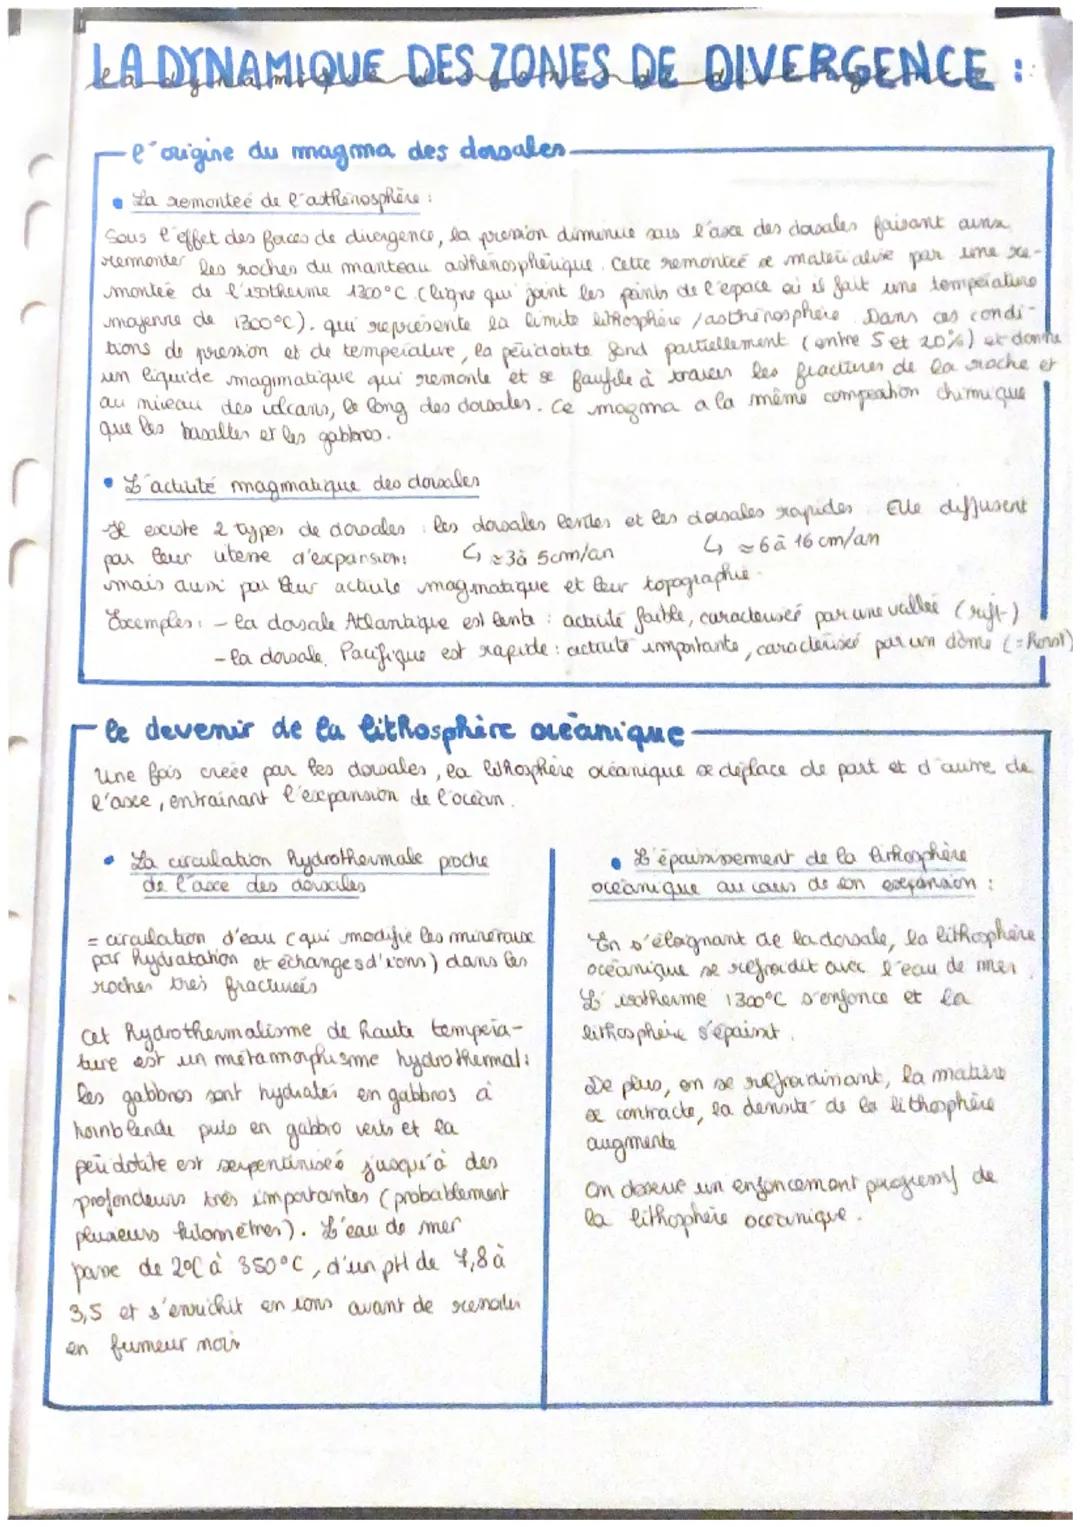 LA DYNAMIQUE DES ZONES DE DIVERGENCE :
la dynamique des zones de divergence
l'origine du magma des dorsales
• La remonteé de l'asthénosphère :
Sous l'effet des forces de divergence, la pression diminue sous l'axe des dorsales faisant ainsi
remonter les roches du manteau asthénosphérique. Cette remonteé se matérialise par une re-
montée de l'isotherme 1300°C (ligne qui joint les points de l'espace où il fait une température
moyenne de 1300°C). qui représente la limite lithosphère / asthénosphère. Dans ces condi-
tions de pression et de température, la péridotite fond partiellement (entre 5 et 20%) et donne
un liquide magmatique qui remonte et se faufile à travers les fractures de la roche et
au niveau des volcans, le long des dorsales. Ce magma a la même composition chimique
que les basaltes et les gabbros.
• L'activité magmatique des dorsales
Il existe 2 types de dorsales : les dorsales lentes et les dorsales rapides. Elle diffusent
par leur vitesse d'expansion: ↳ ≈3à 5cm/an ↳ ≈6à 16cm/an
mais aussi par leur activite magmatique et leur topographie.
Exemples : - la dorsale Atlantique est lente : activité faible, caracteriseé par une valleé (rift)
- la dorsale Pacifique est rapide : activité importante, caractérisé par un dôme (= Horst)
le devenir de la lithosphère océanique
Une fois creée par les dorsales, la lithosphère océanique se déplace de part et d'autre de
l'axe, entrainant l'expansion de l'océan.
• La circulation hydrothermale proche
de l'axe des dorsales
= circulation d'eau (qui modifie les minéraux
par hydratation et échanges d'ions) dans les
roches très fracturées
Cet hydrothermalisme de haute tempéra-
ture est un métamorphisme hydrothermal :
les gabbros sont hydratés en gabbros à
hornblende puis en gabbro verts et la
péridotite est serpentinisé jusqu'à des
profondeurs très importantes (probablement
plusieurs kilomètres). L'eau de mer
passe de 2°C à 350°C, d'un pH de 7,8 à
3,5 et s'enrichit en ions avant de
en fumeur noir
• L'épaississement de la lithosphère
océanique au cours de son expansion :
En s'éloignant de la dorsale, la lithosphère
océanique se refroidit avec l'eau de mer.
L'isotherme 1300°C s'enfonce et la
lithosphère s'épaissit.
De plus, en se refroidissant, la matière
se contracte, la densité de la lithosphère
augmente
On observe un enfoncement progressif de
la lithosphère océanique.